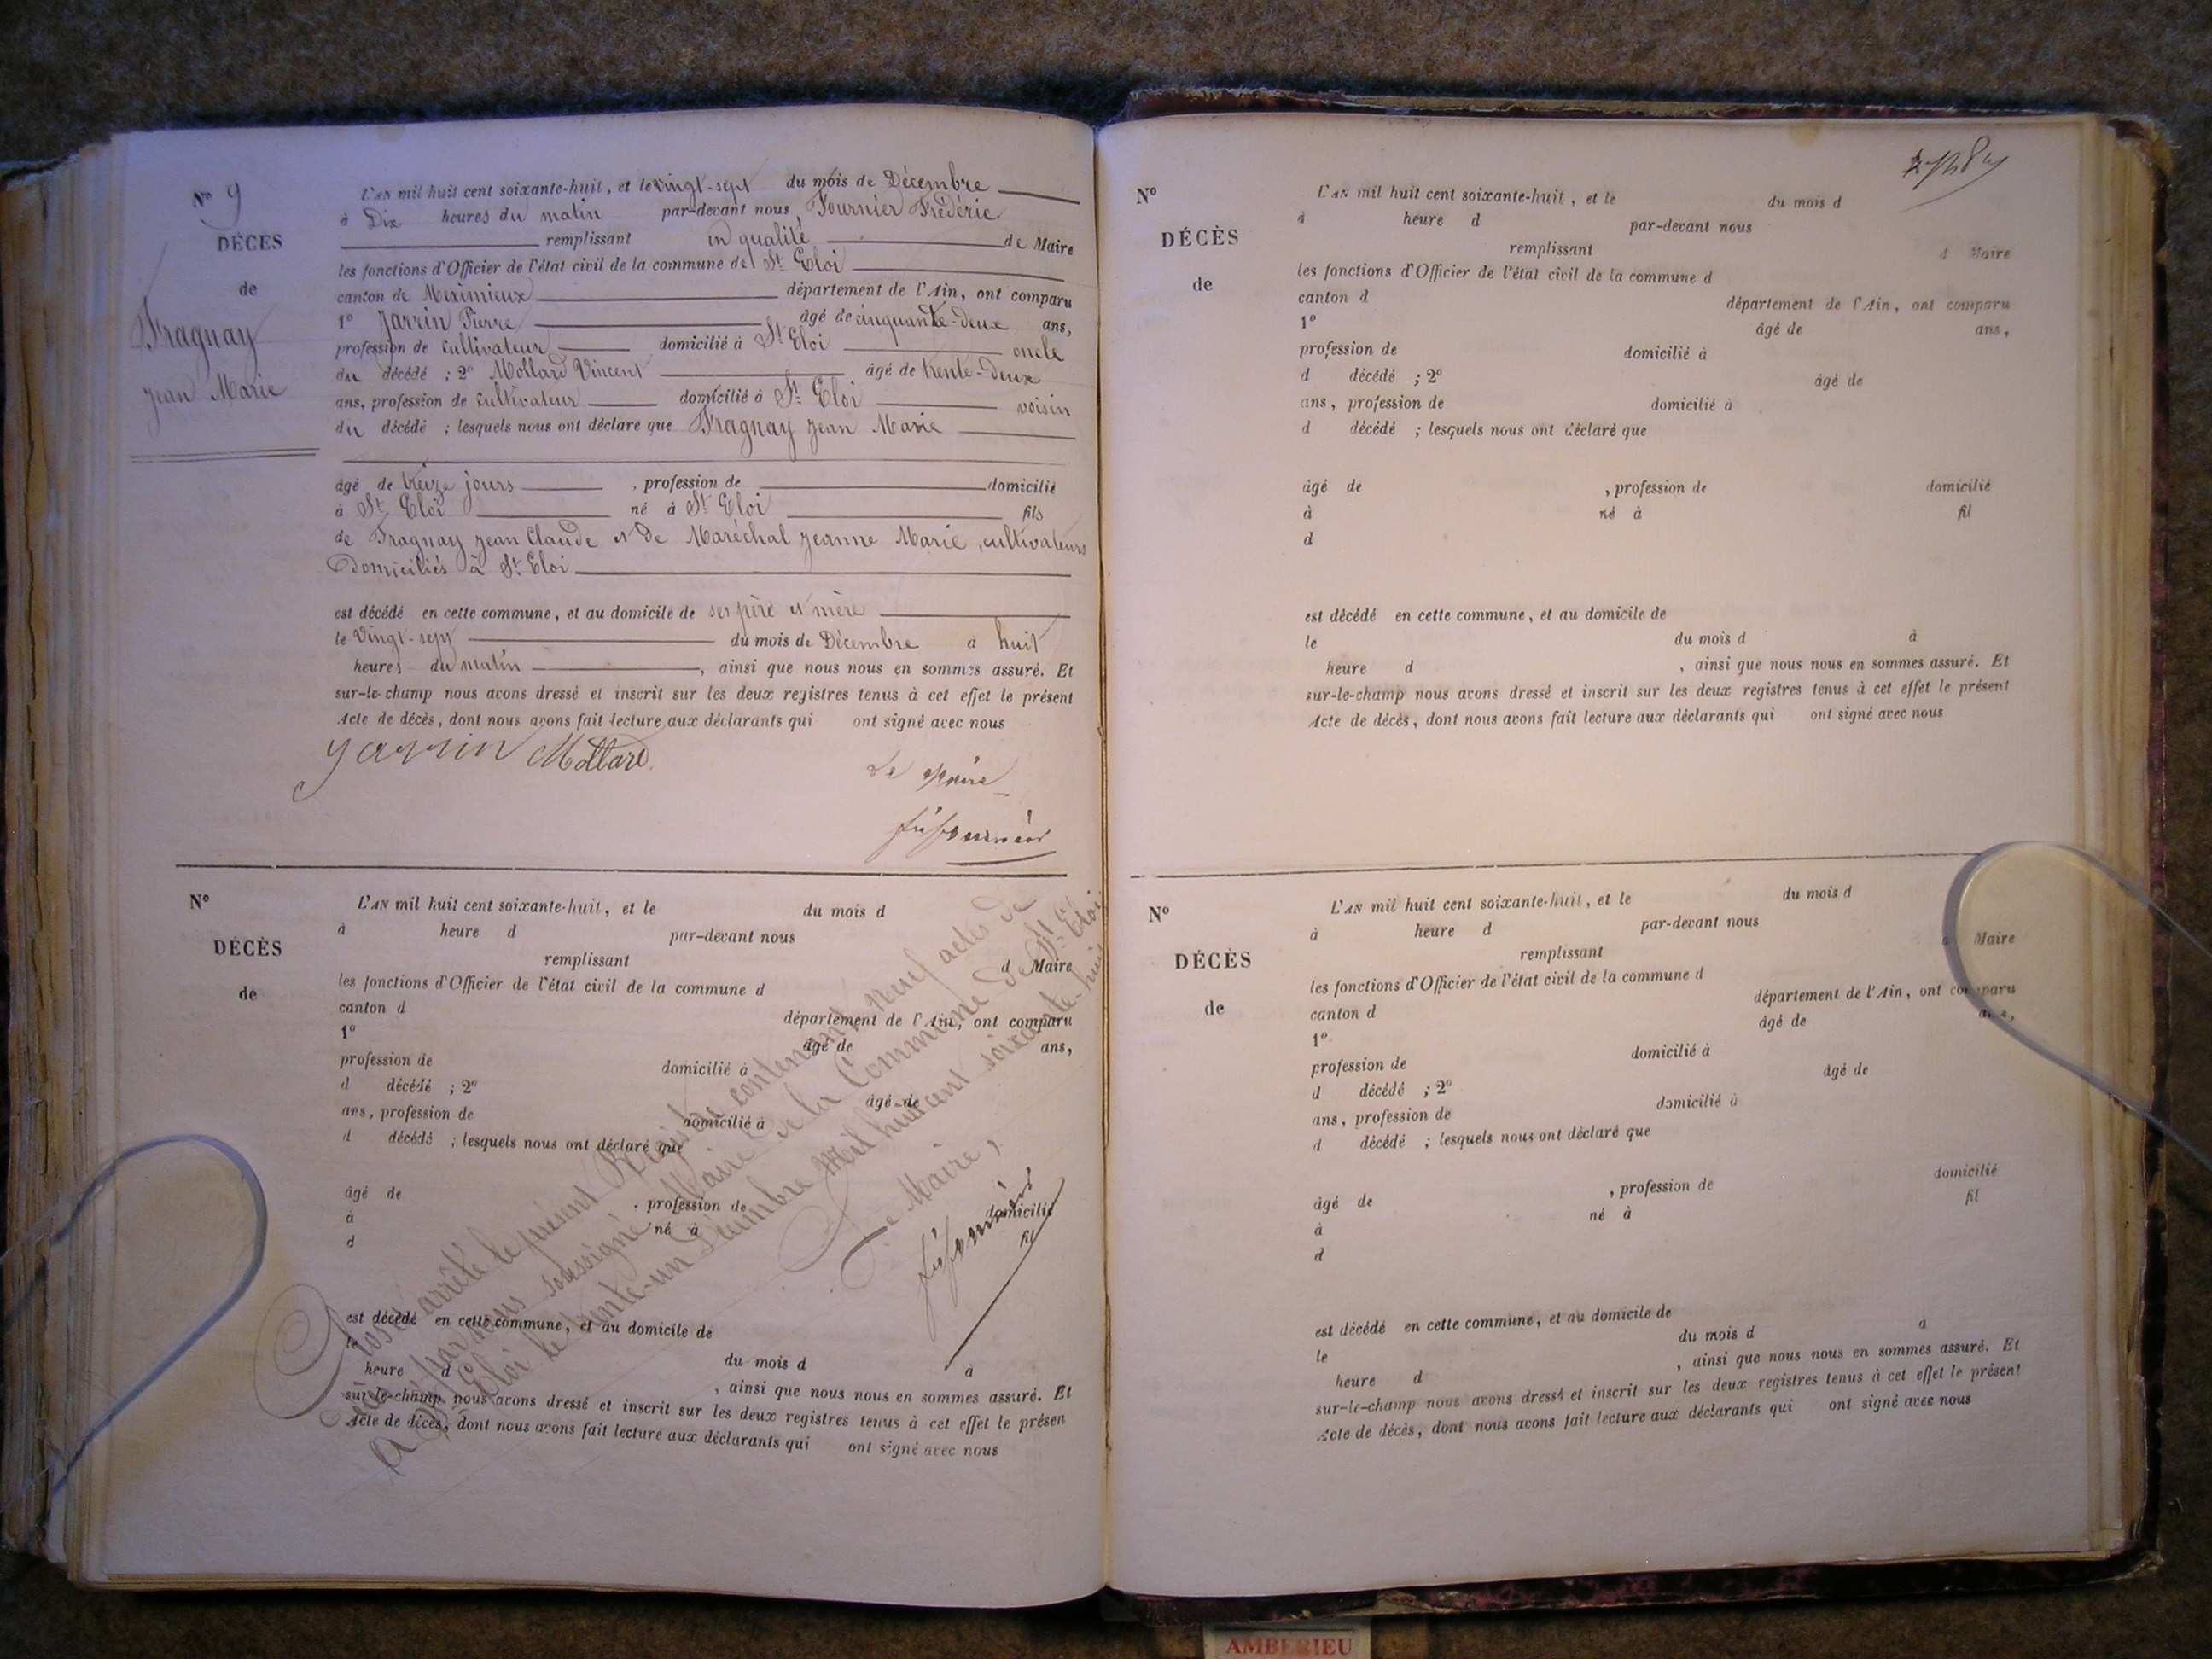 N° 9
DÉCES
de
Fragnay
Jean Marie
L'AN mil huit cent soixante-huit, et le vingt-sept du mois de Décembre
à Dix heures du matin par-devant nous, Fournier Frédéric
remplissant en qualité de Maire
les fonctions d'Officier de l'état civil de la commune de St Eloi
canton de Meximieux département de l'Ain, ont comparu
1° Jarrin Pierre âgé de cinquante-deux ans,
profession de cultivateur domicilié à St Eloi oncle
du décédé ; 2° Mollard Vincent âgé de trente-deux
ans, profession de cultivateur domicilié à St Eloi voisin
du décédé ; lesquels nous ont déclaré que Fragnay Jean Marie
âgé de treize jours , profession de domicilié
à St Eloi né à St Eloi fils
de Fragnay Jean Claude et de Maréchal Jeanne Marie, cultivateurs
Domiciliés à St Eloi
est décédé en cette commune, et au domicile de ses père et mère
le Vingt-sept du mois de Décembre à huit
heures du matin , ainsi que nous nous en sommes assuré. Et
sur-le-champ nous avons dressé et inscrit sur les deux registres tenus à cet effet le présent
Acte de décès, dont nous avons fait lecture aux déclarants qui ont signé avec nous
Jarrin Mollard
Le maire
fré fournier
N°
DÉCÈS
de
L'AN mil huit cent soixante-huit, et le du mois d
à heure d par-devant nous
remplissant d Maire
les fonctions d'Officier de l'état civil de la commune d
canton d département de l'Ain, ont comparu
1° âgé de ans,
profession de domicilié à
d décédé ; 2° âgé de
ans, profession de domicilié à
d décédé ; lesquels nous ont déclaré que
âgé de , profession de domicilié
à né à fil
d
est décédé en cette commune, et au domicile de
le du mois d à
heure d , ainsi que nous nous en sommes assuré. Et
sur-le-champ nous avons dressé et inscrit sur les deux registres tenus à cet effet le présen
Acte de décès, dont nous avons fait lecture aux déclarants qui ont signé avec nous
Clos et arrêté le présent Registre contenant neuf actes de
décès par nous soussigné Maire de la Commune de St Eloi
A St Eloi le trente-un Décembre Mil huit cent soixante-huit
Le Maire,
fré fournier
N°
DÉCÈS
de
L'AN mil huit cent soixante-huit, et le du mois d
à heure d par-devant nous
remplissant d Maire
les fonctions d'Officier de l'état civil de la commune d
canton d département de l'Ain, ont comparu
1° âgé de ans,
profession de domicilié à
d décédé ; 2° âgé de
ans, profession de domicilié à
d décédé ; lesquels nous ont déclaré que
âgé de , profession de domicilié
à né à fil
d
est décédé en cette commune, et au domicile de
le du mois d à
heure d , ainsi que nous nous en sommes assuré. Et
sur-le-champ nous avons dressé et inscrit sur les deux registres tenus à cet effet le présent
Acte de décès, dont nous avons fait lecture aux déclarants qui ont signé avec nous
N°
DÉCÈS
de
L'AN mil huit cent soixante-huit, et le du mois d
à heure d par-devant nous
remplissant Maire
les fonctions d'Officier de l'état civil de la commune d
canton d département de l'Ain, ont comparu
1° âgé de ans,
profession de domicilié à
d décédé ; 2° âgé de
ans, profession de domicilié à
d décédé ; lesquels nous ont déclaré que
âgé de , profession de domicilié
à né à fil
d
est décédé en cette commune, et au domicile de
le du mois d à
heure d , ainsi que nous nous en sommes assuré. Et
sur-le-champ nous avons dressé et inscrit sur les deux registres tenus à cet effet le présent
Acte de décès, dont nous avons fait lecture aux déclarants qui ont signé avec nous
AMBERIEU